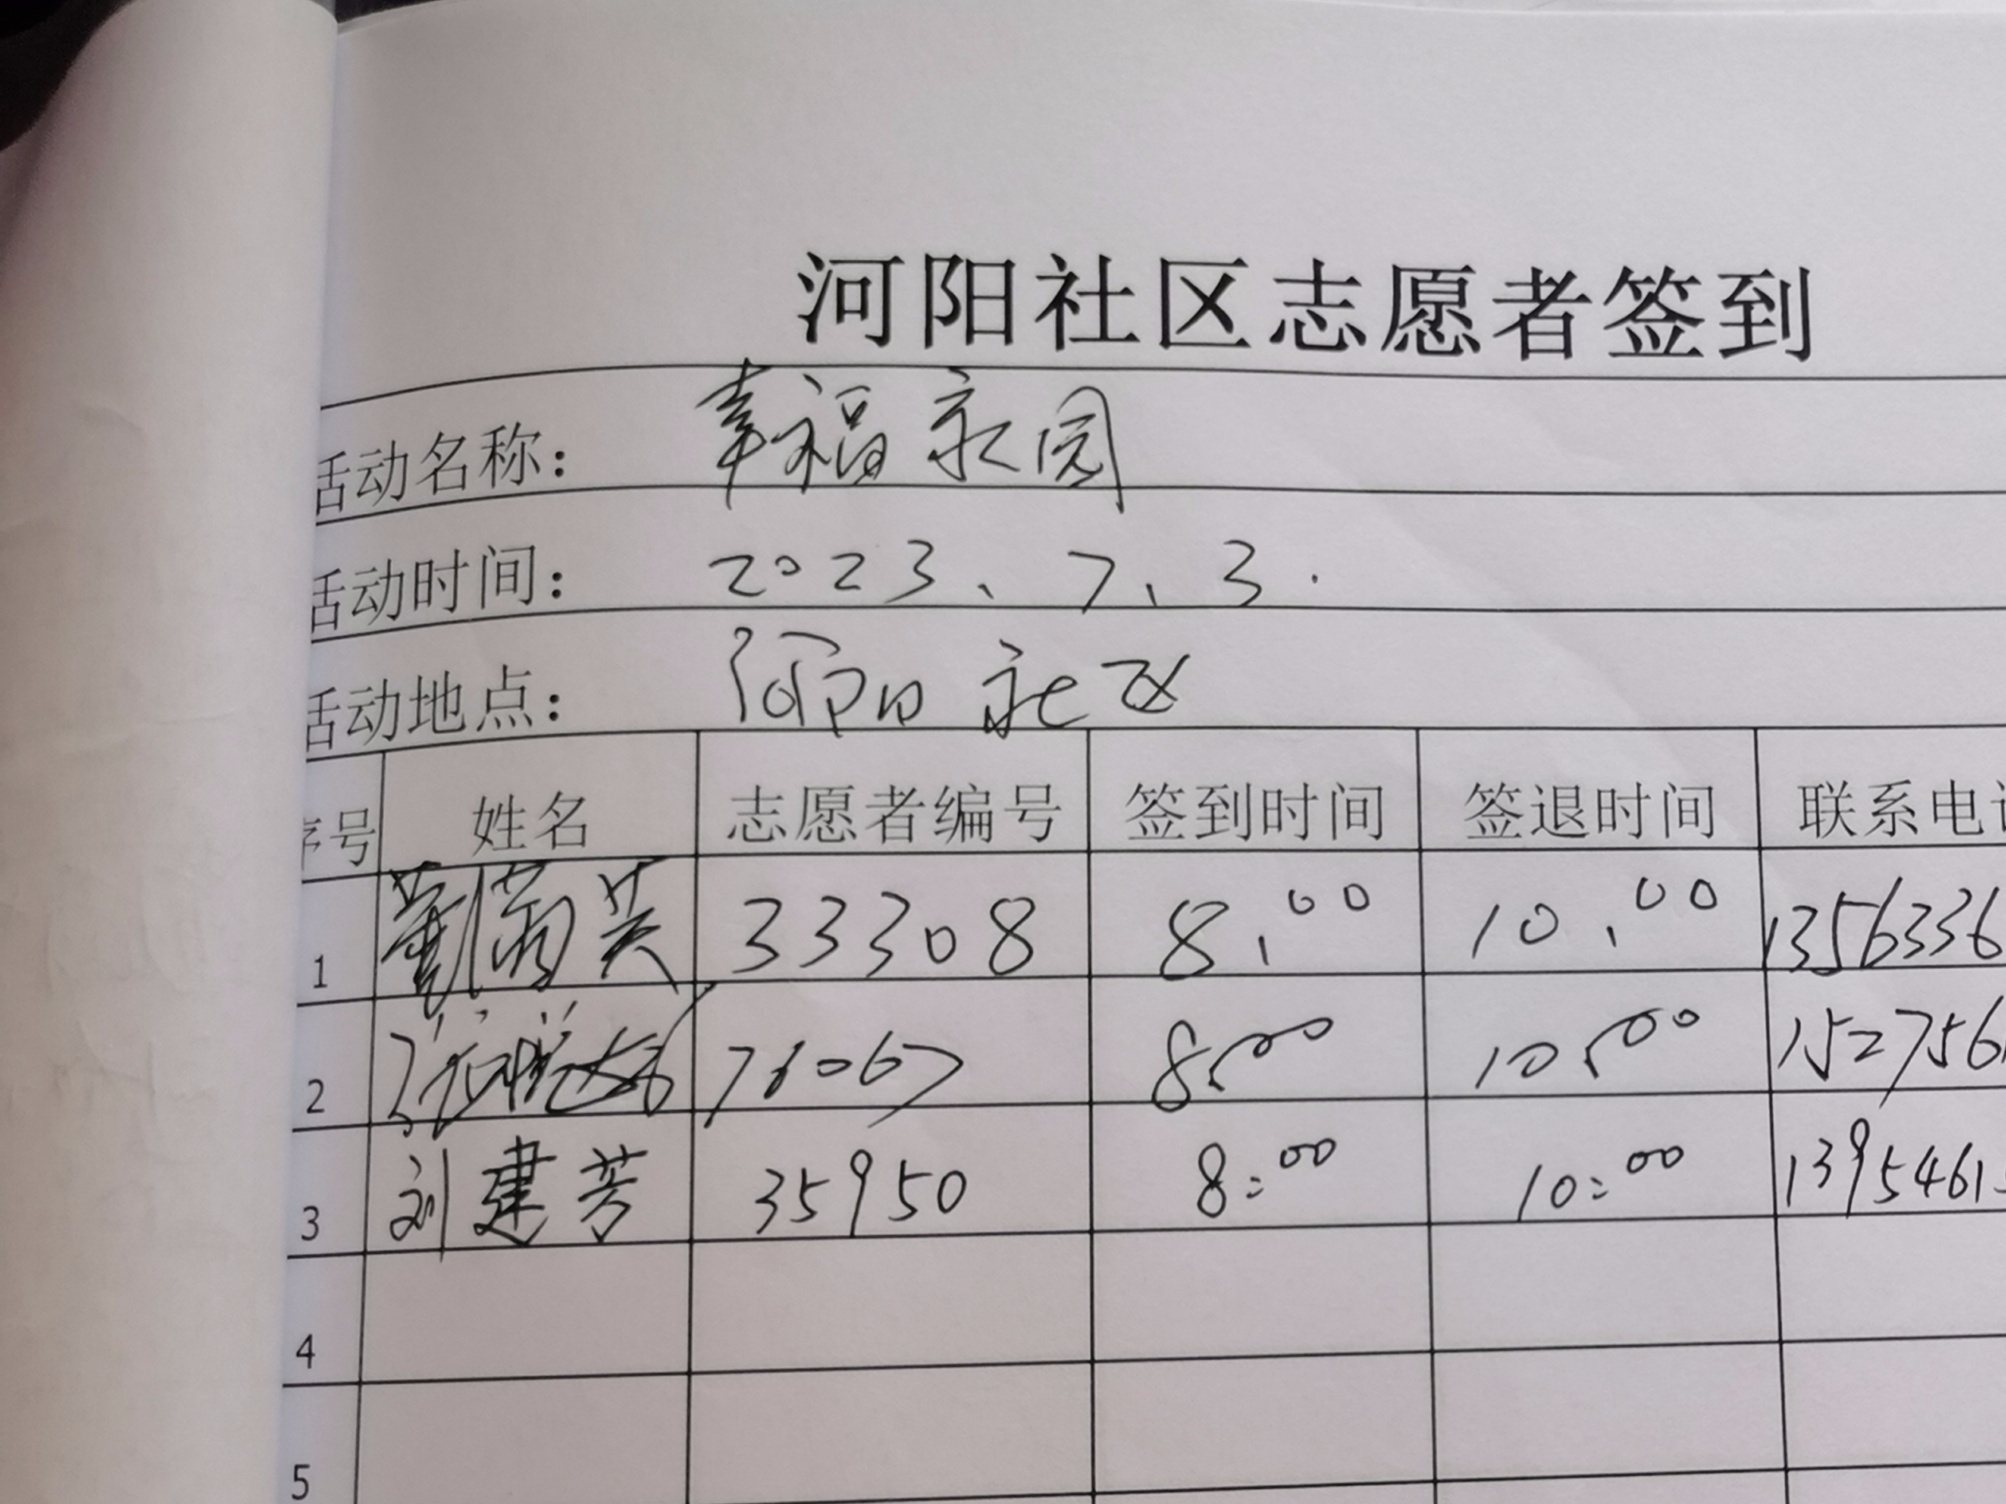 河阳社区志愿者签到
活动名称： 幸福家园
活动时间： 2023、7、3.
活动地点： 河阳社区
序号 姓名 志愿者编号 签到时间 签退时间 联系电话
1 33308 8:00 10:00 1356336
2 71067 8:00 10:00 152756
3 刘建芳 35950 8:00 10:00 1395461
4
5